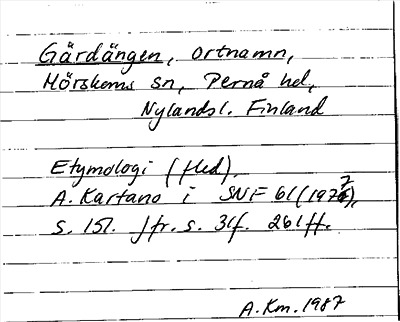 Gärdängen, ortnamn,
Mörskoms sn, Pernå hd,
Nylandsl. Finland
Etymologi (fled).
A. Kartano i SNF 61 (1972),
s. 151. Jfr. s. 31f. 261ff.
A.Km. 1987